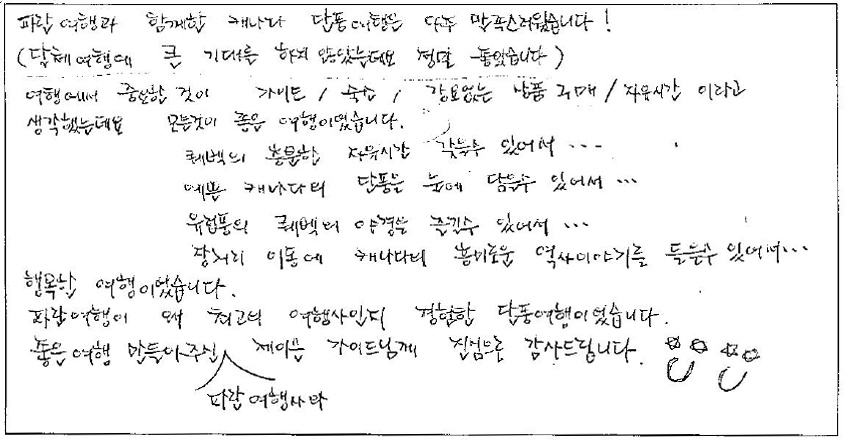 파랑 여행과 함께한 캐나다 단풍여행은 아주 만족스러웠습니다!
(단체여행에 큰 기대를 하지 않았는데요 정말 좋았습니다)
여행에서 중요한 것이 가이드 / 숙소 / 강요없는 상품 구매 / 자유시간 이라고
생각했는데요 모든것이 좋은 여행이었습니다.
퀘벡의 충분한 자유시간 갖을수 있어서 ...
예쁜 캐나다의 단풍을 눈에 담을수 있어서 ...
유럽풍의 퀘벡의 야경을 즐길수 있어서 ...
장거리 이동에 캐나다의 흥미로운 역사이야기를 들을수 있어서...
행복한 여행이었습니다.
파랑여행이 왜 최고의 여행사인지 경험한 단풍여행이었습니다.
좋은여행 만들어주신 제이든 가이드님께 진심으로 감사드립니다.
파랑여행사와